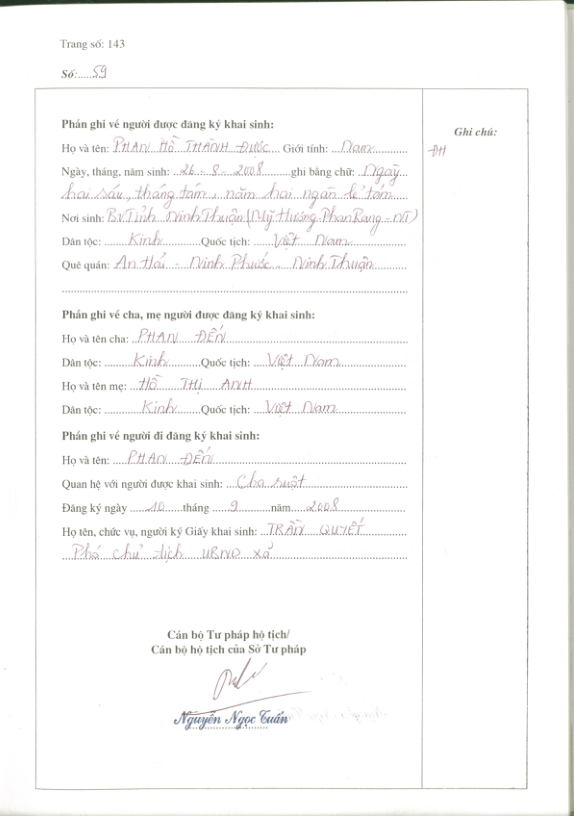 Trang số: 143
Số:.....59
Phần ghi về người được đăng ký khai sinh:
Ghi chú:
Họ và tên: PHAN HỒ THÀNH ĐƯỢC Giới tính: Nam
ĐH
Ngày, tháng, năm sinh: 26 - 8 - 2008 ghi bằng chữ: Ngày
hai sáu, tháng tám, năm hai ngàn lẻ tám
Nơi sinh: B.V Tỉnh Ninh Thuận (Mỹ Hương-Phan Rang - NT)
Dân tộc: Kinh Quốc tịch: Việt Nam
Quê quán: An Hải - Ninh Phước - Ninh Thuận
Phần ghi về cha, mẹ người được đăng ký khai sinh:
Họ và tên cha: PHAN ĐẾN
Dân tộc: Kinh Quốc tịch: Việt Nam
Họ và tên mẹ: HỒ THỊ ANH
Dân tộc: Kinh Quốc tịch: Việt Nam
Phần ghi về người đi đăng ký khai sinh:
Họ và tên: PHAN ĐẾN
Quan hệ với người được khai sinh: Cha ruột
Đăng ký ngày 10 tháng 9 năm 2008
Họ tên, chức vụ, người ký Giấy khai sinh: TRẦN QUYẾT
Phó chủ tịch UBND xã
Cán bộ Tư pháp hộ tịch/
Cán bộ hộ tịch của Sở Tư pháp
Nguyễn Ngọc Tuấn